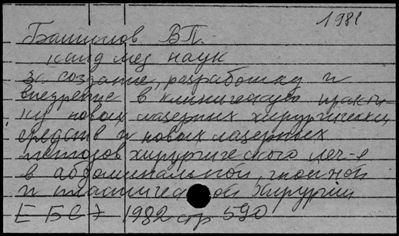 1981
Башилов В.П.
канд мед наук
за создание, разработку и
внедрение в клиническую практи
ку новых лазерных хирургических
средств и новых лазерных
методов хирургического леч-е
в абдоминальной, гнойной
и пластической хирургии
Е БСЭ 1982 стр 590